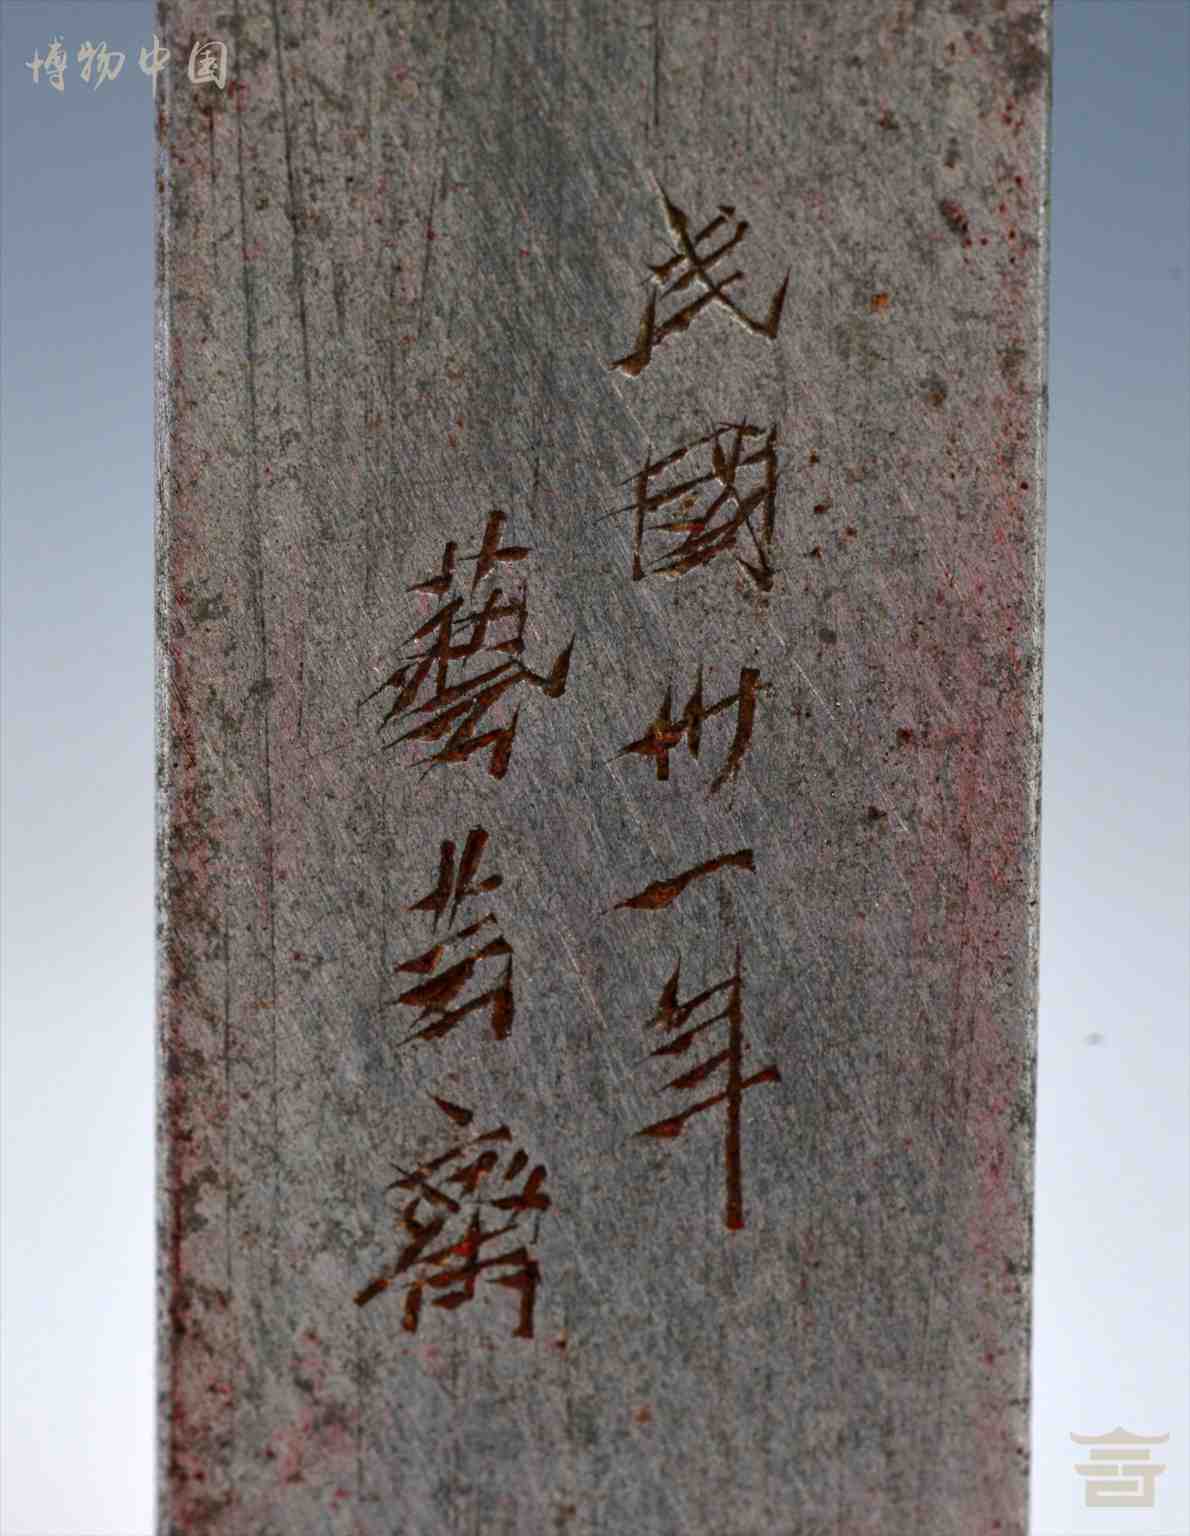 博物中国
民國卅一年
藝芸齋